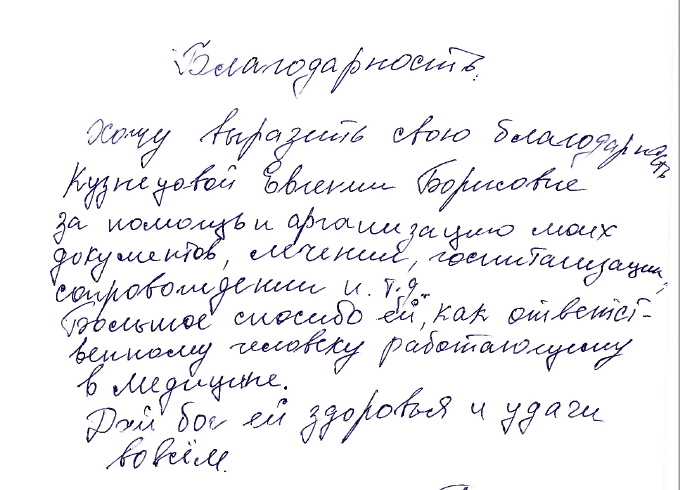 Благодарность.
Хочу выразить свою благодарность
Кузнецовой Евгении Борисовне
за помощь и организацию моих
документов, лечении, госпитализации,
сопровождении и т.д.
Большое спосибо ей, как ответст-
венному человеку работающему
в медицине.
Дай бог ей здоровья и удачи
во всём.